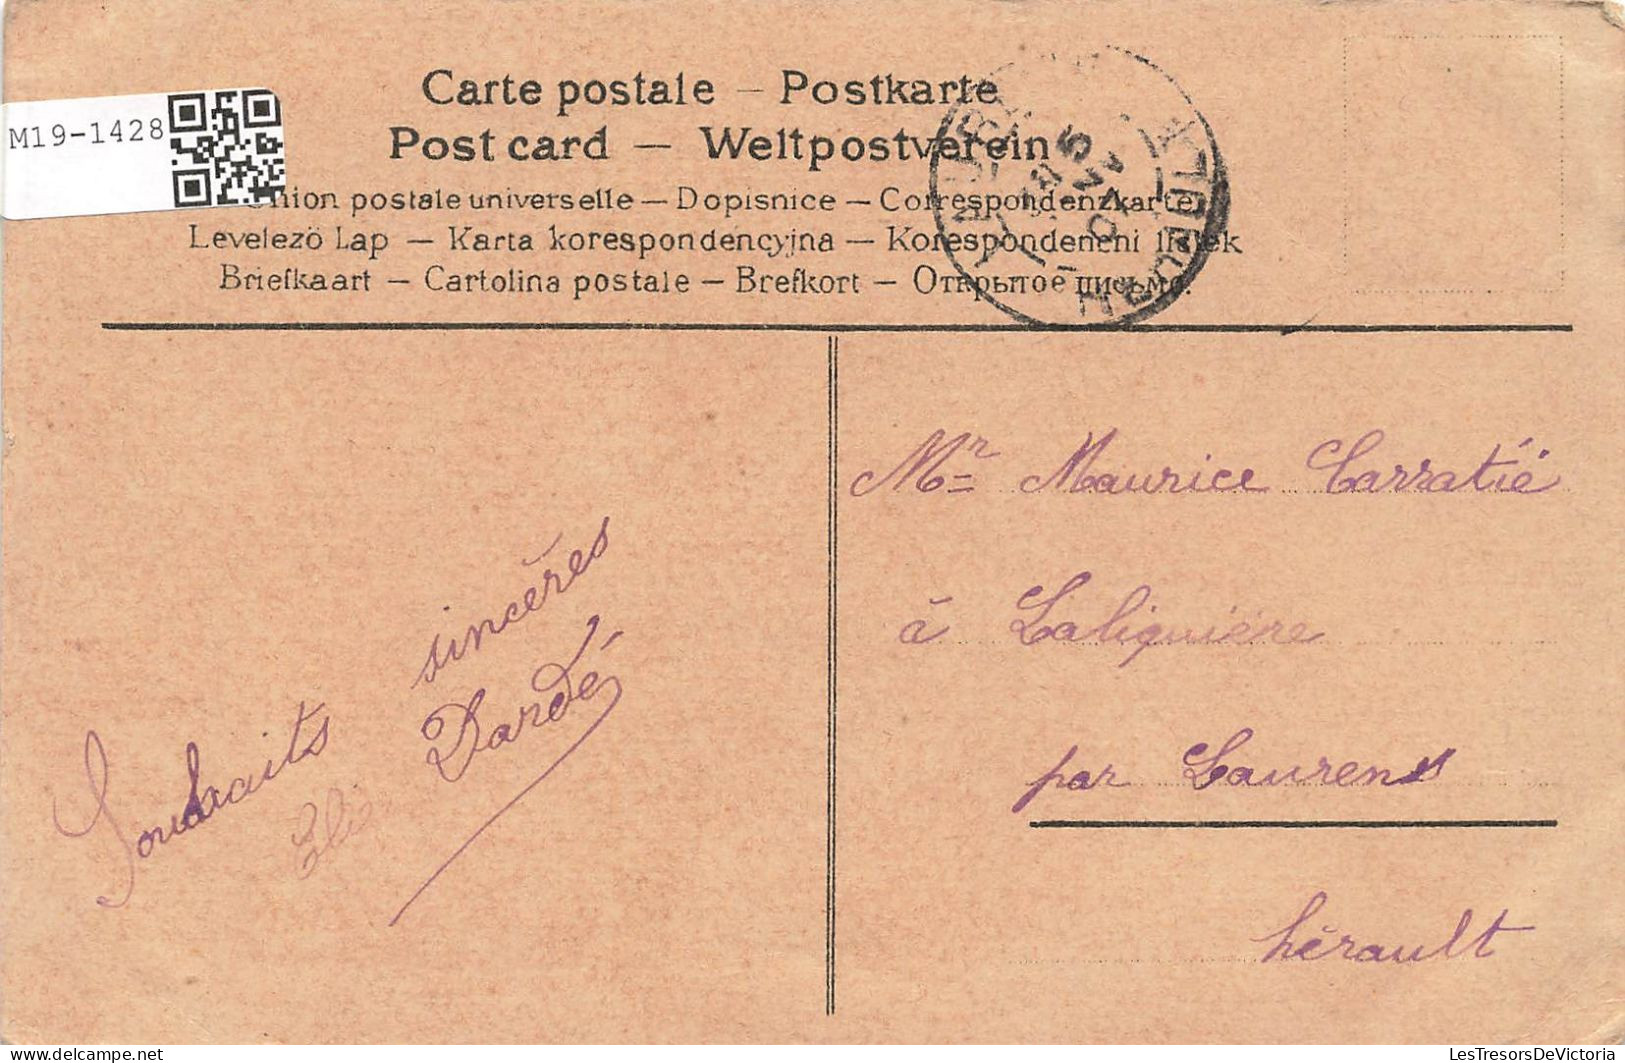 M19-1428
Carte postale – Postkarte
Post card — Weltpostverein
Union postale universelle — Dopisnice — Correspondenzkarte
Levelező Lap — Karta korespondencyjna — Korespondenčni listek
Briefkaart — Cartolina postale — Brefkort — Открытое письмо.
Souhaits sincères
Elie Dardé
Mr Maurice Carratié
à Laliquière
par Laurens
hérault
delcampe.net
LesTresorsDeVictoria